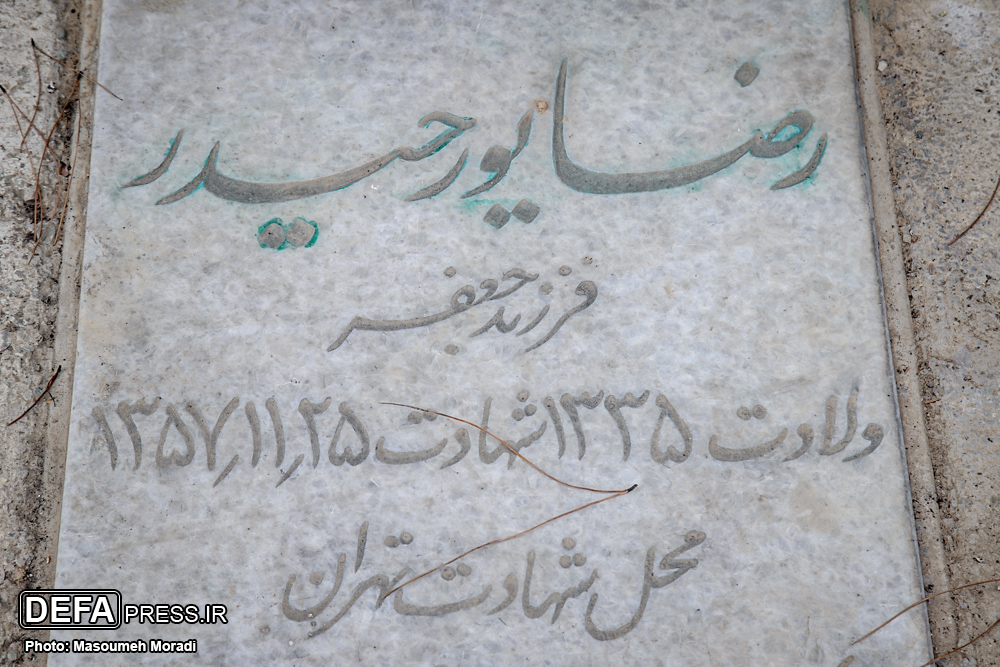 رضا پور حیدر
فرزند جعفر
ولادت ۱۳۳۵ شهادت ۱۳۵۷/۱۱/۲۵
محل شهادت تهران
DEFAPRESS.IR
Photo: Masoumeh Moradi